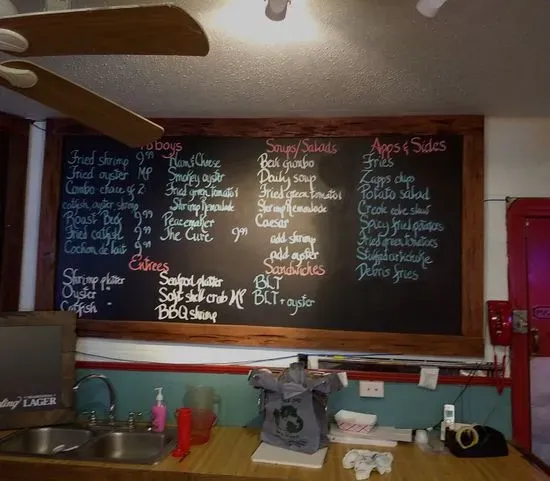 Po boys
Fried shrimp 9.99
Fried oyster MP
Combo choice of 2
catfish, oyster, shrimp
Roast Beef 9.99
Fried catfish 9.99
Cochon de lait 9.99
Ham & Cheese
Smokey oyster
Fried green tomato &
Shrimp Remoulade
Peacemaker
The Cure 9.99
Soups/Salads
Gumbo
soup
Fried green tomato &
Shrimp Remoulade
Caesar
add shrimp
add oyster
Sandwiches
BLT
BLT + oyster
Apps & Sides
Fries
Zapps chips
Potato salad
Creole cole slaw
Spicy fried potatoes
Fried green tomatoes
Stuffed artichoke
Debris fries
Entrees
Shrimp platter
Oyster
Catfish
Seafood platter
Soft shell crab MP
BBQ shrimp
LAGER